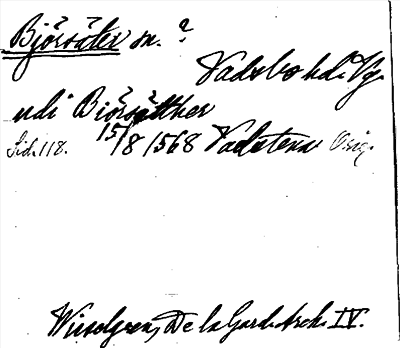 Björsäter sn. ?
Vadsbo hd. Vg.
udi Biörsätther
Sid. 118. 15/8 1568 Vadstena Orig.
Wieselgren, De la Gard. Arch. IV.